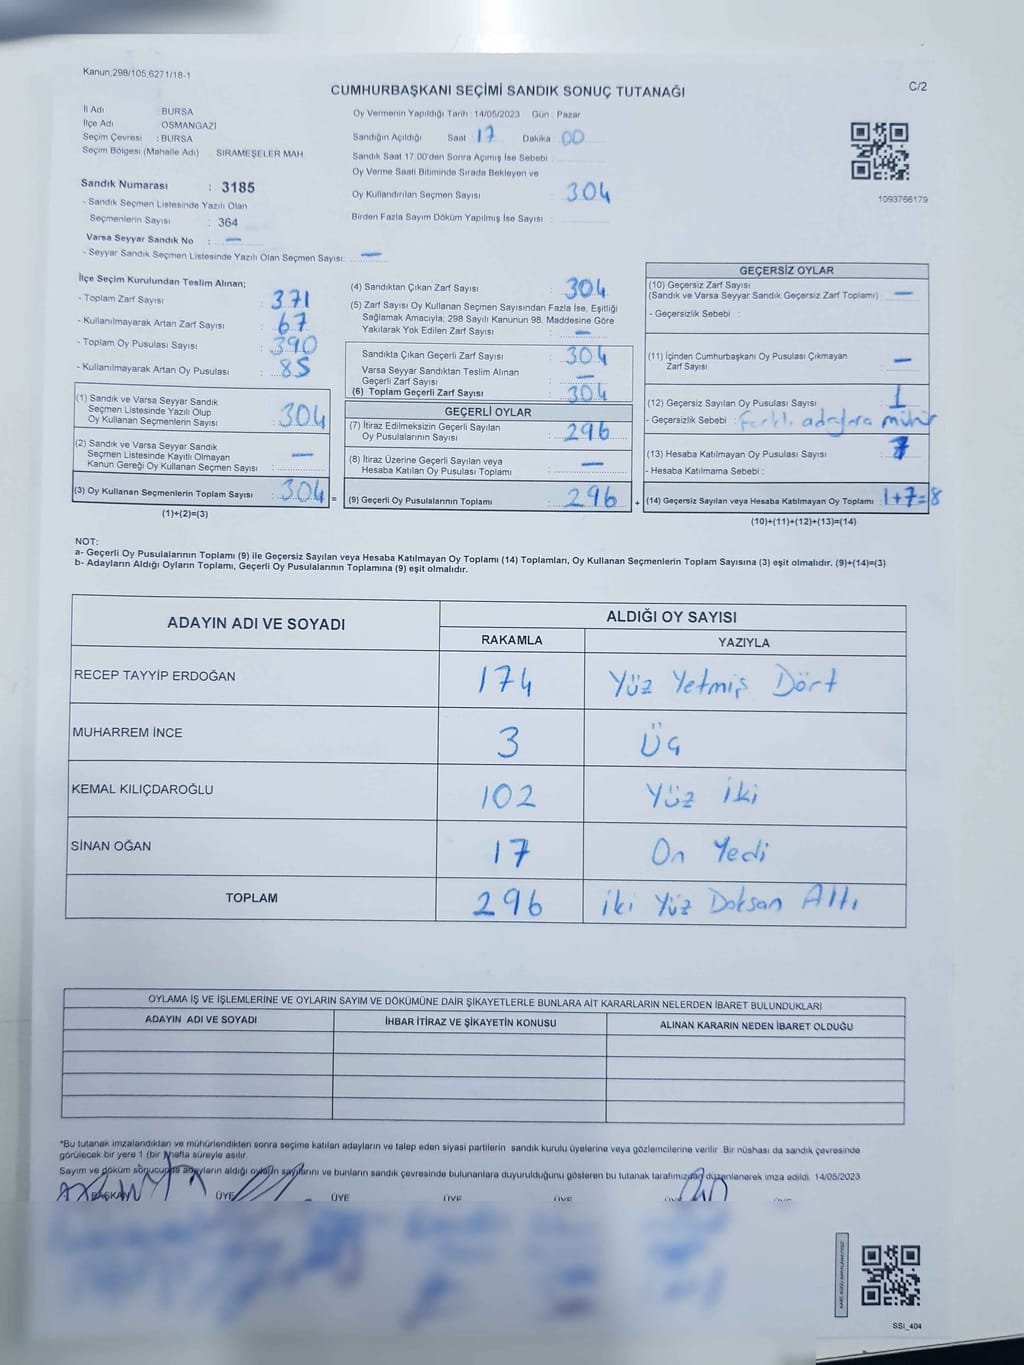 Kanun,298/105,6271/18-1
C/2
CUMHURBAŞKANI SEÇİMİ SANDIK SONUÇ TUTANAĞI
İl Adı BURSA
İlçe Adı OSMANGAZİ
Seçim Çevresi : BURSA
Seçim Bölgesi (Mahalle Adı) SIRAMEŞELER MAH
Sandık Numarası : 3185
- Sandık Seçmen Listesinde Yazılı Olan
Seçmenlerin Sayısı : 364
Varsa Seyyar Sandık No : —
- Seyyar Sandık Seçmen Listesinde Yazılı Olan Seçmen Sayısı: —
Oy Vermenin Yapıldığı Tarih : 14/05/2023 Gün : Pazar
Sandığın Açıldığı Saat 17 Dakika : 00
Sandık Saat 17.00'den Sonra Açımış İse Sebebi :
Oy Verme Saati Bitiminde Sırada Bekleyen ve
Oy Kullandırılan Seçmen Sayısı : 304
Birden Fazla Sayım Döküm Yapılmış İse Sayısı :
1093766179
İlçe Seçim Kurulundan Teslim Alınan;
- Toplam Zarf Sayısı : 371
- Kullanılmayarak Artan Zarf Sayısı : 67
- Toplam Oy Pusulası Sayısı : 390
- Kullanılmayarak Artan Oy Pusulası : 85
(1) Sandık ve Varsa Seyyar Sandık
Seçmen Listesinde Yazılı Olup
Oy Kullanan Seçmenlerin Sayısı : 304
(2) Sandık ve Varsa Seyyar Sandık
Seçmen Listesinde Kayıtlı Olmayan
Kanun Gereği Oy Kullanan Seçmen Sayısı : —
(3) Oy Kullanan Seçmenlerin Toplam Sayısı : 304 =
(1)+(2)=(3)
(4) Sandıktan Çıkan Zarf Sayısı : 304
(5) Zarf Sayısı Oy Kullanan Seçmen Sayısından Fazla İse, Eşitliği
Sağlamak Amacıyla; 298 Sayılı Kanunun 98. Maddesine Göre
Yakılarak Yok Edilen Zarf Sayısı : —
Sandıkta Çıkan Geçerli Zarf Sayısı : 304
Varsa Seyyar Sandıktan Teslim Alınan
Geçerli Zarf Sayısı : —
(6) Toplam Geçerli Zarf Sayısı : 304
GEÇERLİ OYLAR
(7) İtiraz Edilmeksizin Geçerli Sayılan
Oy Pusulalarının Sayısı : 296
(8) İtiraz Üzerine Geçerli Sayılan veya
Hesaba Katılan Oy Pusulası Toplamı : —
(9) Geçerli Oy Pusulalarının Toplamı : 296 +
GEÇERSİZ OYLAR
(10) Geçersiz Zarf Sayısı
(Sandık ve Varsa Seyyar Sandık Geçersiz Zarf Toplamı) : —
- Geçersizlik Sebebi :
(11) İçinden Cumhurbaşkanı Oy Pusulası Çıkmayan
Zarf Sayısı : —
(12) Geçersiz Sayılan Oy Pusulası Sayısı : 1
- Geçersizlik Sebebi : Farklı adaylara mühür
(13) Hesaba Katılmayan Oy Pusulası Sayısı : 7
- Hesaba Katılmama Sebebi :
(14) Geçersiz Sayılan veya Hesaba Katılmayan Oy Toplamı : 1+7=8
(10)+(11)+(12)+(13)=(14)
NOT:
a- Geçerli Oy Pusulalarının Toplamı (9) ile Geçersiz Sayılan veya Hesaba Katılmayan Oy Toplamı (14) Toplamları, Oy Kullanan Seçmenlerin Toplam Sayısına (3) eşit olmalıdır. (9)+(14)=(3)
b- Adayların Aldığı Oyların Toplamı, Geçerli Oy Pusulalarının Toplamına (9) eşit olmalıdır.
ADAYIN ADI VE SOYADI ALDIĞI OY SAYISI
RAKAMLA YAZIYLA
RECEP TAYYİP ERDOĞAN 174 Yüz Yetmiş Dört
MUHARREM İNCE 3 Üç
KEMAL KILIÇDAROĞLU 102 Yüz İki
SİNAN OĞAN 17 On Yedi
TOPLAM 296 iki Yüz Doksan Altı
OYLAMA İŞ VE İŞLEMLERİNE VE OYLARIN SAYIM VE DÖKÜMÜNE DAİR ŞİKAYETLERLE BUNLARA AİT KARARLARIN NELERDEN İBARET BULUNDUKLARI
ADAYIN ADI VE SOYADI İHBAR İTİRAZ VE ŞİKAYETİN KONUSU ALINAN KARARIN NEDEN İBARET OLDUĞU
*Bu tutanak imzalandıktan ve mühürlendikten sonra seçime katılan adayların ve talep eden siyasi partilerin sandık kurulu üyelerine veya gözlemcilerine verilir. Bir nüshası da sandık çevresinde
görülecek bir yere 1 (bir) hafta süreyle asılır.
Sayım ve döküm sonucunda adayların aldığı oyların sayılarını ve bunların sandık çevresinde bulunanlara duyurulduğunu gösteren bu tutanak tarafımızdan düzenlenerek imza edildi. 14/05/2023
BAŞKAN ÜYE ÜYE ÜYE ÜYE ÜYE
SSI_404